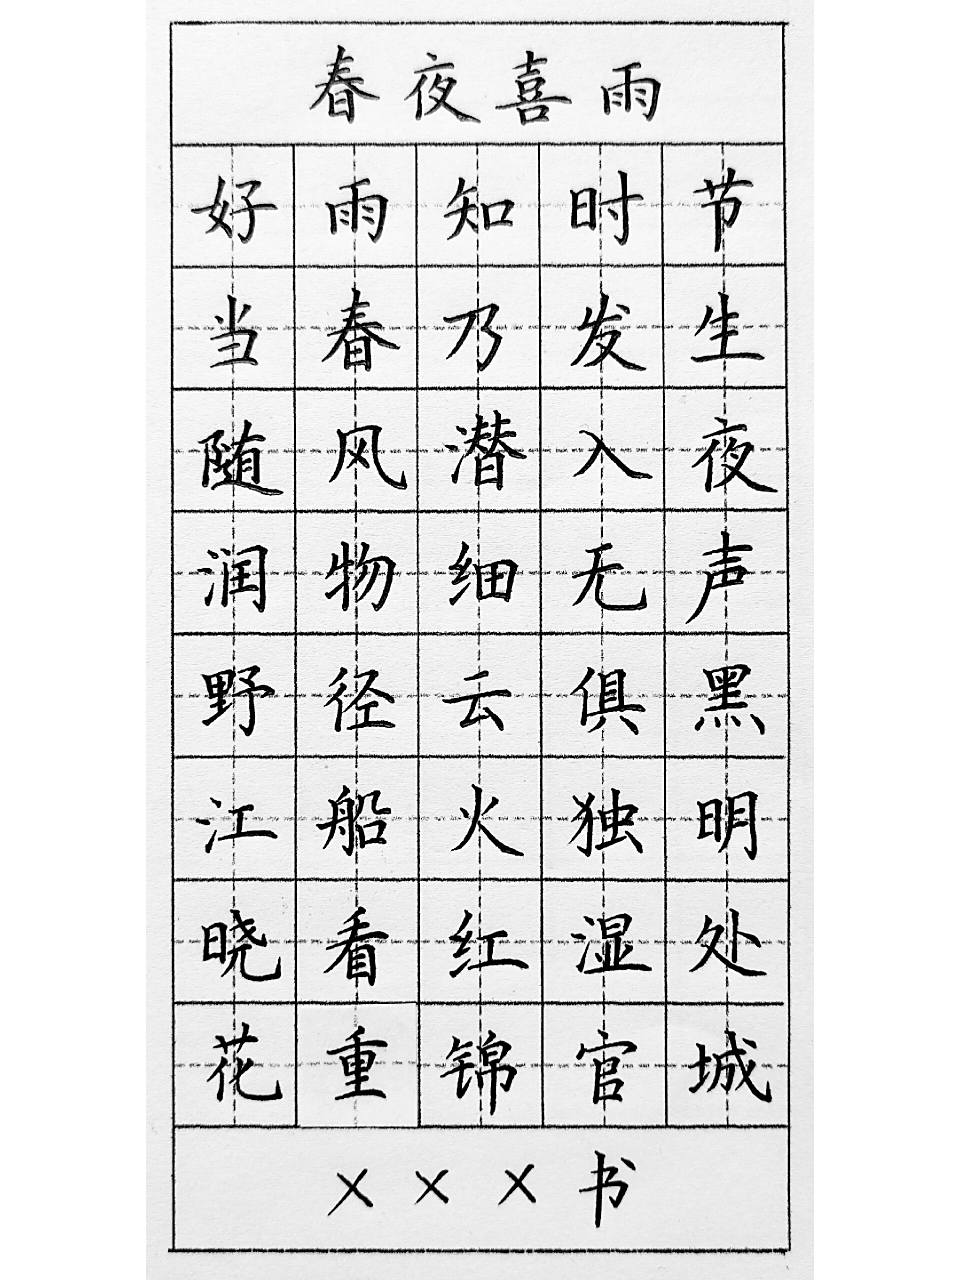 春夜喜雨
好雨知时节
当春乃发生
随风潜入夜
润物细无声
野径云俱黑
江船火独明
晓看红湿处
花重锦官城
×××书